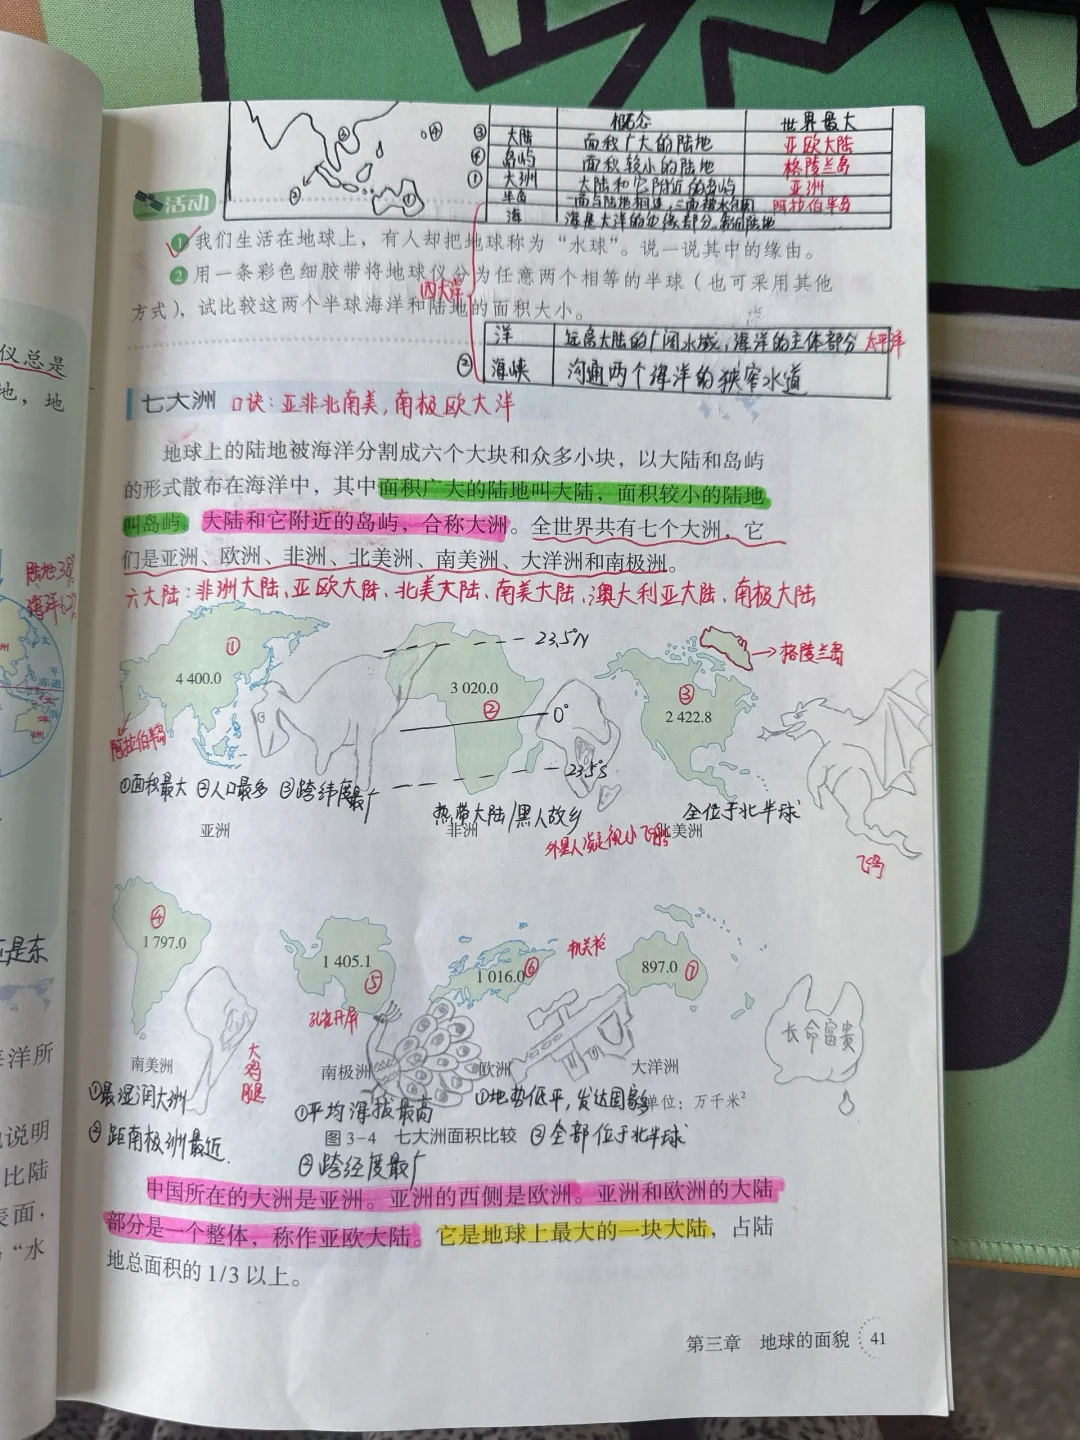 概念 世界最大
③ 大陆 面积广大的陆地 亚欧大陆
④ 岛屿 面积较小的陆地 格陵兰岛
① 大洲 大陆和它附近的岛屿 亚洲
半岛 一面与陆地相连,三面 阿拉伯半岛
海 海是大洋的边缘部分,
③ ④
② ①
活动
1 我们生活在地球上,有人却把地球称为“水球”。说一说其中的缘由。
2 用一条彩色细胶带将地球仪分为任意两个相等的半球(也可采用其他
方式),试比较这两个半球海洋和陆地的面积大小。
四大洋
洋 远离大陆的广阔水域,海洋的主体部分 太平洋
② 海峡 沟通两个海洋的狭窄水道
七大洲 口诀:亚非北南美,南极欧大洋
地球上的陆地被海洋分割成六个大块和众多小块,以大陆和岛屿
的形式散布在海洋中,其中面积广大的陆地叫大陆,面积较小的陆地
叫岛屿。大陆和它附近的岛屿,合称大洲。全世界共有七个大洲,它
们是亚洲、欧洲、非洲、北美洲、南美洲、大洋洲和南极洲。
六大陆:非洲大陆、亚欧大陆、北美大陆、南美大陆、澳大利亚大陆、南极大陆
① 4 400.0
阿拉伯半岛
①面积最大 ②人口最多 ③跨纬度最广
亚洲
23.5°N
3 020.0
②
0°
23.5°S
热带大陆/黑人故乡
非洲
外星人凝视小飞船
格陵兰岛
③
2 422.8
全位于北半球
北美洲
飞鸟
④
1 797.0
南美洲
①最湿润大洲
②距南极洲最近
大鸡腿
1 405.1
⑤
孔雀开屏
南极洲
①平均海拔最高
②跨经度最广
1 016.0 ⑥
机关枪
欧洲
①地势低平,发达国家多
②全部位于北半球
897.0 ⑦
大洋洲
长命富贵
单位:万千米²
图 3-4 七大洲面积比较
中国所在的大洲是亚洲。亚洲的西侧是欧洲。亚洲和欧洲的大陆
部分是一个整体,称作亚欧大陆。它是地球上最大的一块大陆,占陆
地总面积的 1/3 以上。
第三章 地球的面貌 41
仪总是
地,地
海洋所
说明
比陆
表面,
“水